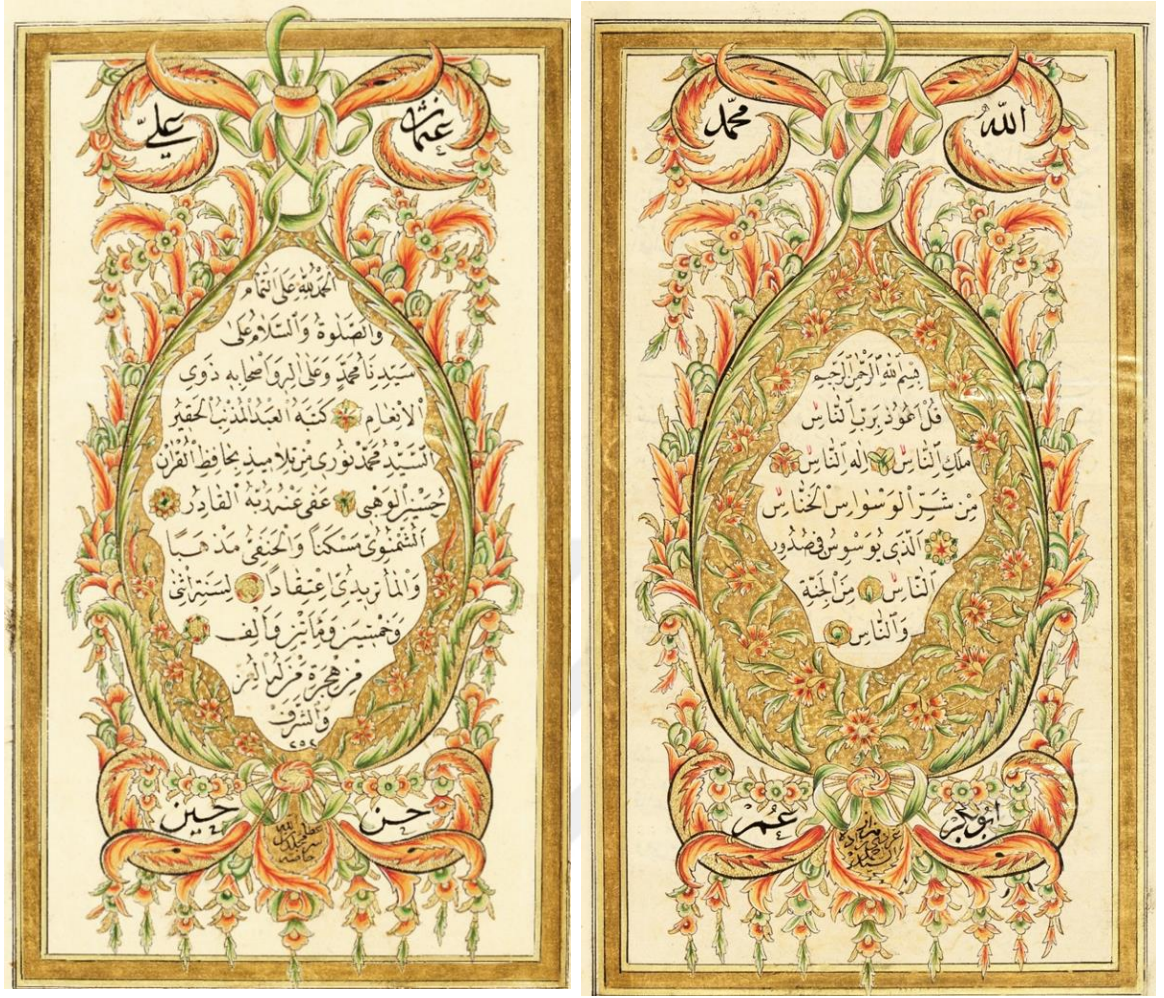 الله محمّد
بسم الله الرحمن الرحيم
قل اعوذ برب الناس
ملك الناس اله الناس
من شر الوسواس الخناس
الذى يوسوس فى صدور
الناس من الجنة
والناس
ابو بكر عمر
عثمان علي
الحمد لله على التمام
والصلوة والسلام على
سيدنا محمد وعلى اله واصحابه ذوى
الانعام كتبه العبد المذنب الحقير
السيد محمد نورى من تلاميذ حافظ القران
حسن الوهبى عفى عنه ربه القادر
الشمنوى مسكنا والحنفى مذهبا
والماتريدى اعتقادا لسنة اثنى
وخمسين ومأتين والف
من هجرة من له العز
والشرف
٢٥٢
حسن حسين